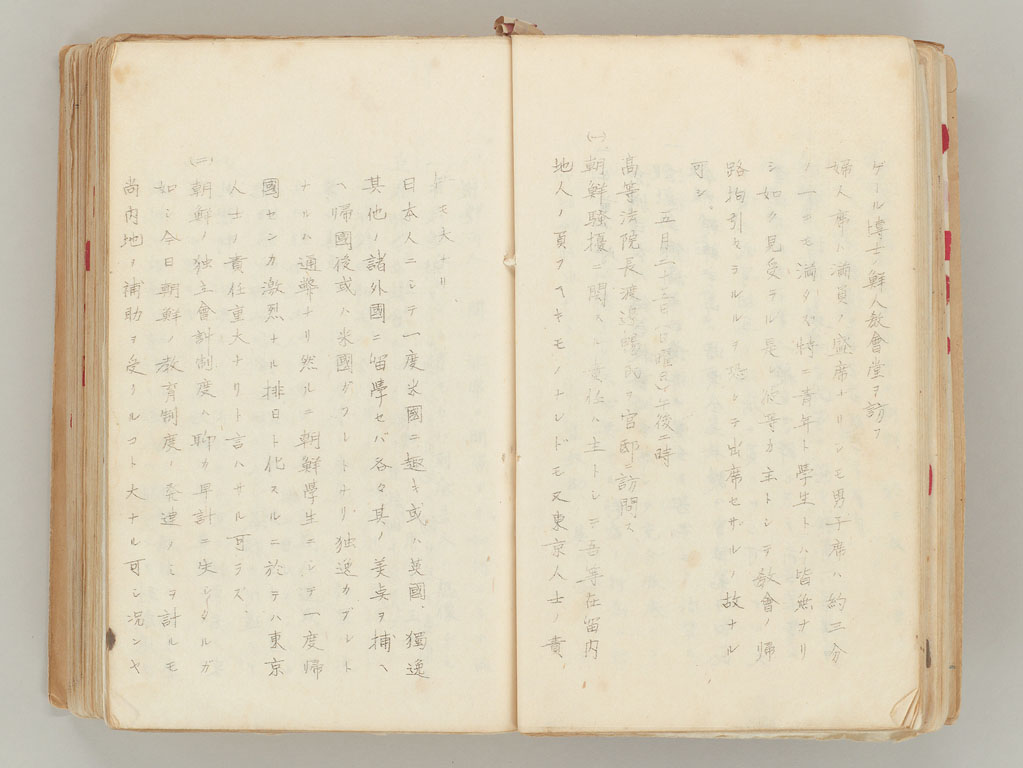 ゲール博士ノ鮮人敎會堂ヲ訪フ
婦人席ハ滿員ノ盛席ナリシモ男子席ハ約二分
ノ一ニモ滿タズ特ニ青年ト學生トハ皆無ナリ
シ如ク見受ラル是レ彼等カ主トシテ敎會ノ帰
路拘引セラルルヲ恐レテ出席セサルノ故ナル
可シ
五月二十三日 午後二時
高等法院長渡邉暢氏ヲ官邸ニ訪問ス
(一)
朝鮮騒擾ニ関スル責任ハ主トシテ吾等在留内
地人ノ負フヘキモノナレドモ又東京人士ノ責
大ナリ
日本人ニシテ一度米國ニ趣キ或ハ英國、獨逸
其他ノ諸外國ニ留學セバ各々其ノ美矣ヲ捕ヘ
帰國後或ハ米國ガブレトナリ独逸カブレト
ナルハ通弊ナリ然ルニ朝鮮學生ニシテ一度帰
國センカ激烈ナル排日ト化スルニ於テハ東京
人士ノ責任重大ナリト言ハサル可ラズ
(二)
朝鮮ノ独立會計制度ハ聊カ早計ニ失シタルガ
如シ今日朝鮮ノ敎育制度ノ発達ノミヲ計ルモ
尚内地ノ補助ヲ受クルコト大ナル可シ況ンヤ